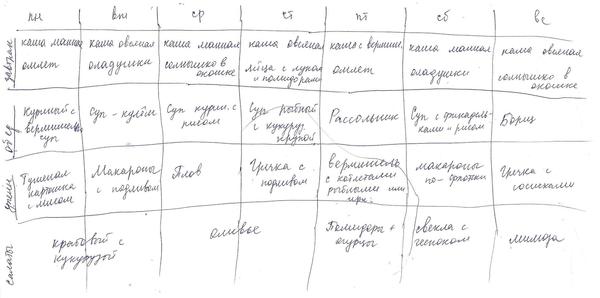 пн вт ср чт пт сб вс
завтрак
каша манная каша овсяная каша манная каша овсяная каша с вермиш. каша манная каша овсяная
омлет оладушки солнышко в яйца с луком омлет оладушки солнышко в
окошке и помидорами окошке
обед
Куриный с Суп-кулеш Суп курин. с Суп рыбный Рассольник Суп с фрикадель- Борщ
вермишелью рисом с кукуруз. ками и рисом
суп крупой
ужин
Тушеная Макароны Плов Гречка с вермишель макароны Гречка с
картошка с подливом подливом с котлетами по-флотски сосисками
с мясом рыбными или
салаты
крабовый с оливье Помидоры + свекла с мимоза
кукурузой огурцы чесноком